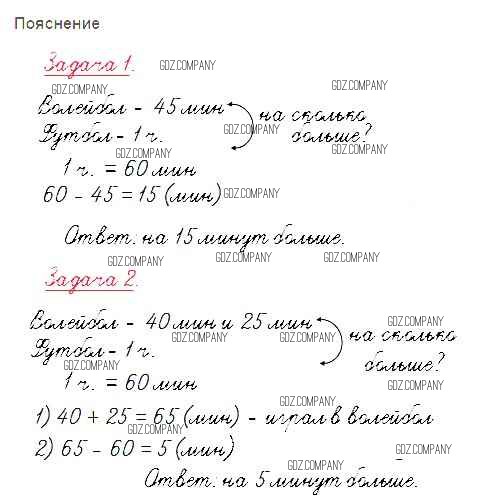 Пояснение
Задача 1.
GDZ.COMPANY
GDZ.COMPANY
Волейбол - 45 мин
на сколько
Футбол - 1 ч.
GDZ.COMPANY
больше?
GDZ.COMPANY
GDZ.COMPANY
1 ч. = 60 мин
60 - 45 = 15 (мин)
GDZ.COMPANY
Ответ: на 15 минут больше.
GDZ.COMPANY
GDZ.COMPANY
GDZ.COMPANY
Задача 2.
Волейбол - 40 мин и 25 мин
GDZ.COMPANY
на сколько
GDZ.COMPANY
GDZ.COMPANY
Футбол - 1 ч.
больше?
GDZ.COMPANY
1 ч. = 60 мин
GDZ.COMPANY
GDZ.COMPANY
1) 40 + 25 = 65 (мин) - играл в волейбол
GDZ.COMPANY
2) 65 - 60 = 5 (мин)
GDZ.COMPANY
GDZ.COMPANY
Ответ: на 5 минут больше.